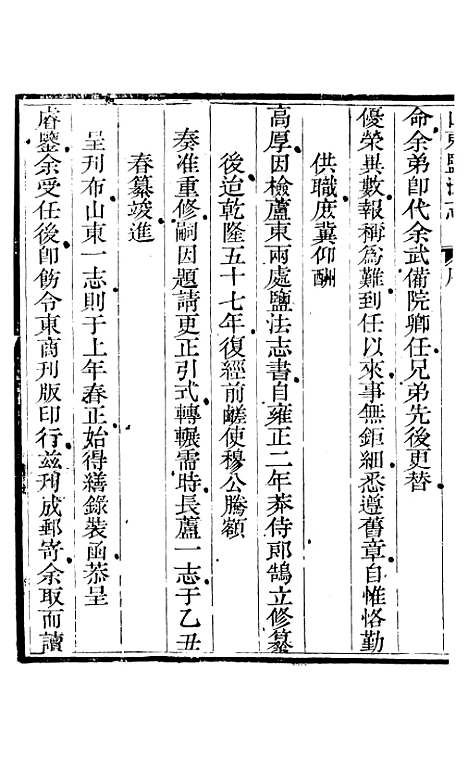 命余弟卽代余武備院卿任兄弟先後更替
優榮異數報稱爲難到任以來事無鉅細悉遵舊章自惟恪勤
供職庶冀仰酬
高厚因檢蘆東兩處鹽法志書自雍正二年莽侍郎鵠立修纂
後迨乾隆五十七年復經前鹺使穆公騰額
奏准重修嗣因題請更正引式轉輾需時長蘆一志于乙丑
春纂竣進
呈刊布山東一志則于上年春正始得繕錄裝函恭呈
睿鑒余受任後卽飭令東商刊版印行茲刊成郵寄余取而讀